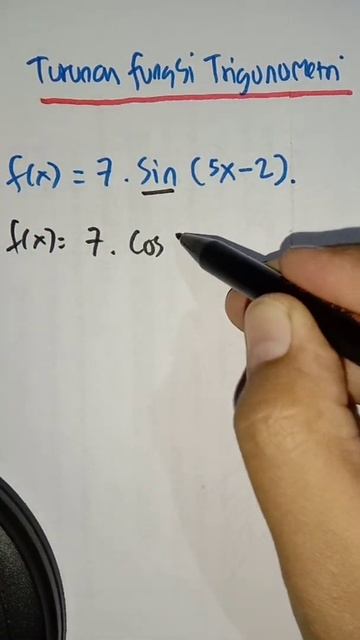 Turunan fungsi Trigonometri
f(x) = 7 . sin (5x-2).
f(x) = 7 . cos